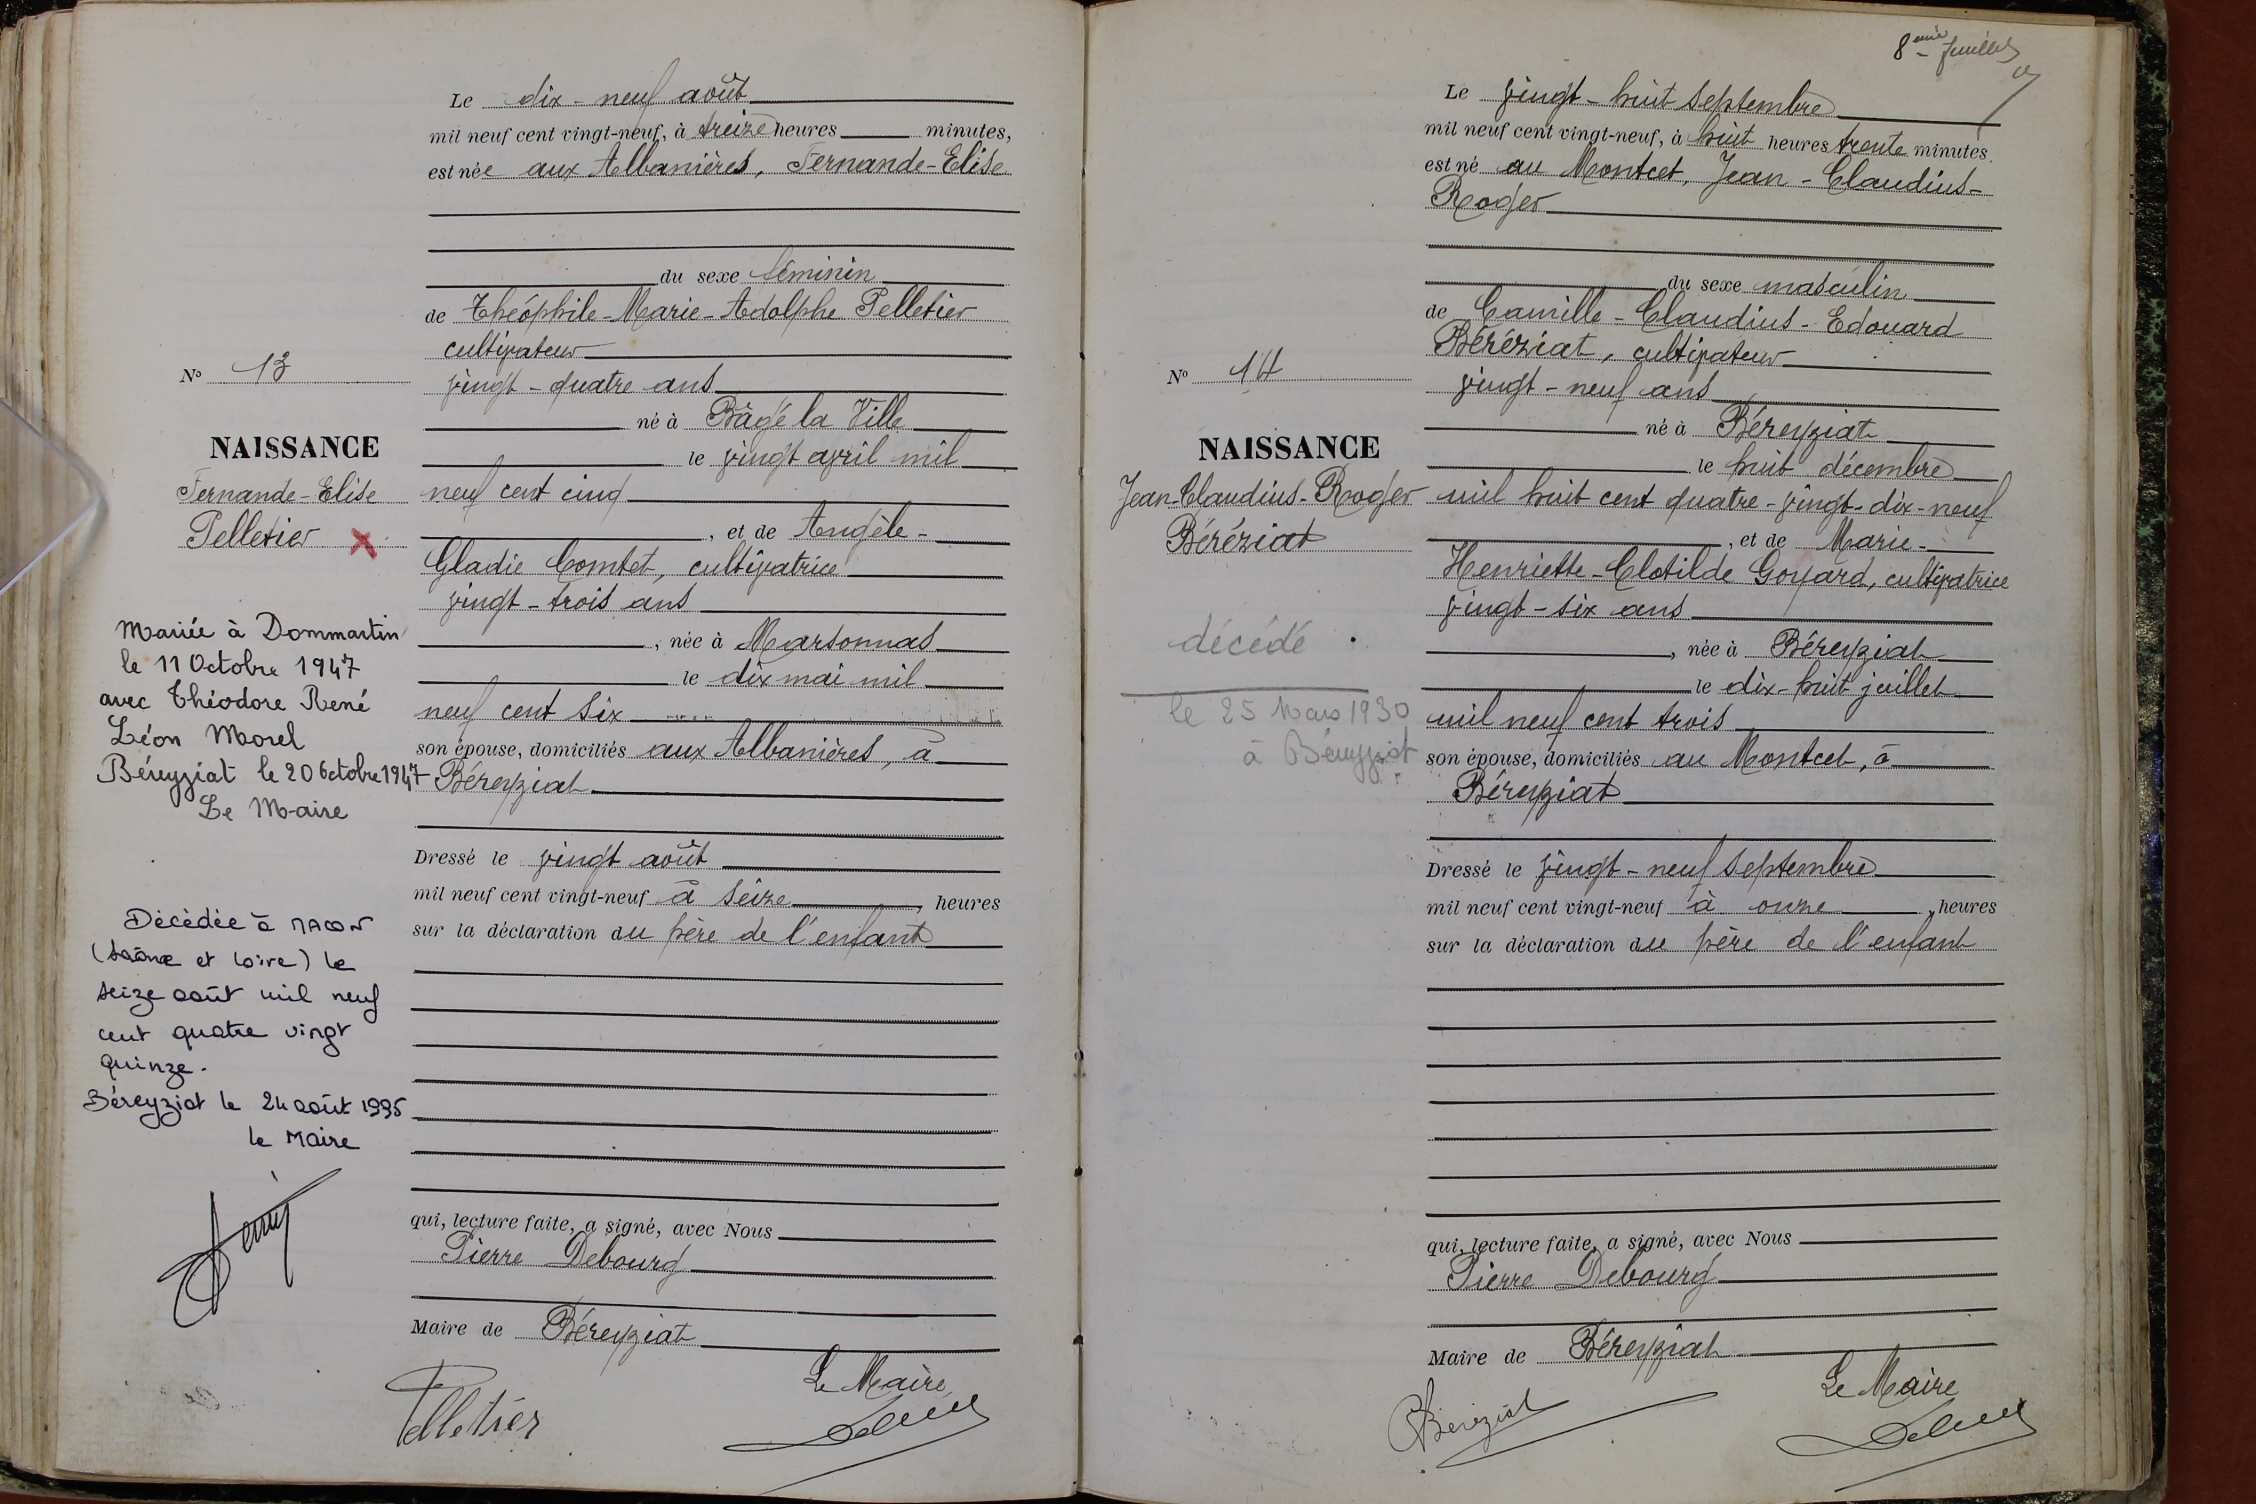 Le dix-neuf août
mil neuf cent vingt-neuf, à treize heures minutes,
est née aux Albanières, Fernande-Elise
du sexe féminin
de Théophile-Marie-Adolphe Pelletier
cultivateur
vingt-quatre ans
né à Bâgé la Ville
le vingt avril mil
neuf cent cinq
, et de Angèle-
Gladie Comtet, cultivatrice
vingt-trois ans
, née à Marsonnas
le dix mai mil
neuf cent six
son épouse, domiciliés aux Albanières, à
Béreyziat
Dressé le vingt août
mil neuf cent vingt-neuf à seize, heures
sur la déclaration du père de l'enfant
qui, lecture faite, a signé, avec Nous
Pierre Debourg
Maire de Béreyziat
Le Maire
Pelletier
N° 13
NAISSANCE
Fernande-Elise
Pelletier
Mariée à Dommartin
le 11 Octobre 1947
avec Théodore René
Léon Morel
Béreyziat le 20 Octobre 1947
Le Maire
Décédée à MACON
(Saône et Loire) le
seize août mil neuf
cent quatre vingt
quinze.
Béreyziat le 24 août 1995
le Maire
8ème feuillet
Le vingt-huit septembre
mil neuf cent vingt-neuf, à huit heures trente minutes.
est né au Montcet, Jean-Claudius-
Roger
du sexe masculin
de Camille-Claudius-Edouard
Béréziat, cultivateur
vingt-neuf ans
né à Béreyziat
le huit décembre
mil huit cent quatre-vingt-dix-neuf
, et de Marie-
Henriette-Clotilde Goyard, cultivatrice
vingt-six ans
, née à Béreyziat
le dix-huit juillet
mil neuf cent trois
son épouse, domiciliés au Montcet, à
Béreyziat
Dressé le vingt-neuf septembre
mil neuf cent vingt-neuf à onze, heures
sur la déclaration du père de l'enfant
qui, lecture faite, a signé, avec Nous
Pierre Debourg
Maire de Béreyziat
Le Maire
Béréziat
N° 14
NAISSANCE
Jean-Claudius-Roger
Béréziat
décédé
le 25 Mars 1930
à Béreyziat